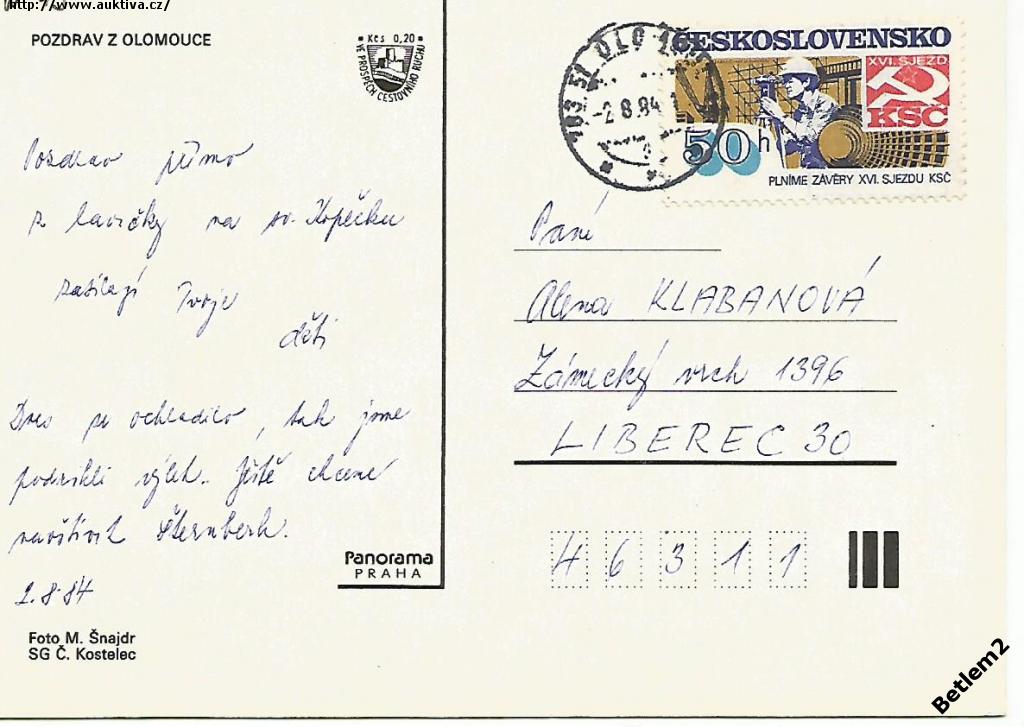 http://www.auktiva.cz/
POZDRAV Z OLOMOUCE
Kčs 0,20
VE PROSPĚCH CESTOVNÍHO RUCHU
Pozdrav přímo
z lavičky na sv. Kopečku
zasílají Tvoje
děti
Dnes se ochladilo, tak jsme
podnikli výlet. Ještě chceme
navštívit Šternberk.
2.8.84
Foto M. Šnajdr
SG Č. Kostelec
Panorama
PRAHA
OLO
-2.8.84
ČESKOSLOVENSKO
XVI. SJEZD
KSČ
50h
PLNÍME ZÁVĚRY XVI. SJEZDU KSČ
Paní
Alena KLABANOVÁ
Zámecký vrch 1396
LIBEREC 30
46311
Betlem2